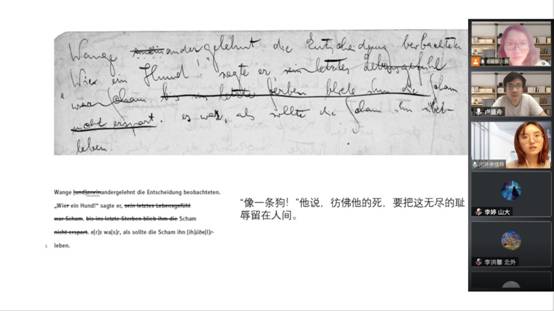 Wange andergelehnt die Entscheidung beobachteten
„Wie ein Hund!" sagte er sein letztes Lebensgefühl
war Scham bis ins letzte Sterben blieb ihm die Scham
nicht erspart. es war, als sollte die Scham ihn über-
leben.
andergelehnt die Entscheidung beobachteten.
„Wie ein Hund!" sagte er, sein letztes Lebensgefühl
war Scham, bis ins letzte Sterben blieb ihm die Scham
nicht erspart. als sollte die Scham ihn
5 leben.
“像一条狗！”他说，彷佛他的死，要把这无尽的耻
辱留在人间。
卢盛舟
李婷 山大
李洪馨 北外